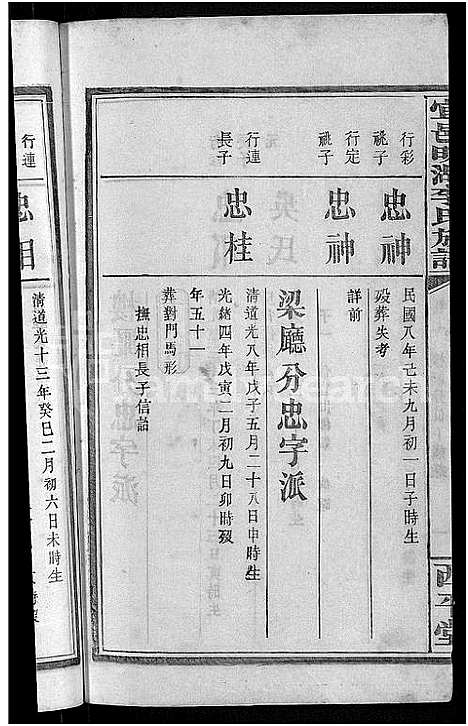 宜邑明湖李氏族譜
西平堂
行彩
祧子
忠神
民國八年己未九月初一日子時生
歿葬失考
行定
祧子
忠神
詳前
梁廳分忠字派
行連
長子
忠桂
清道光八年戊子五月二十八日申時生
光緒四年戊寅二月初九日卯時歿
年五十一
葬對門馬形
撫忠相長子信誥
行連
忠相
清道光十三年癸巳二月初六日未時生